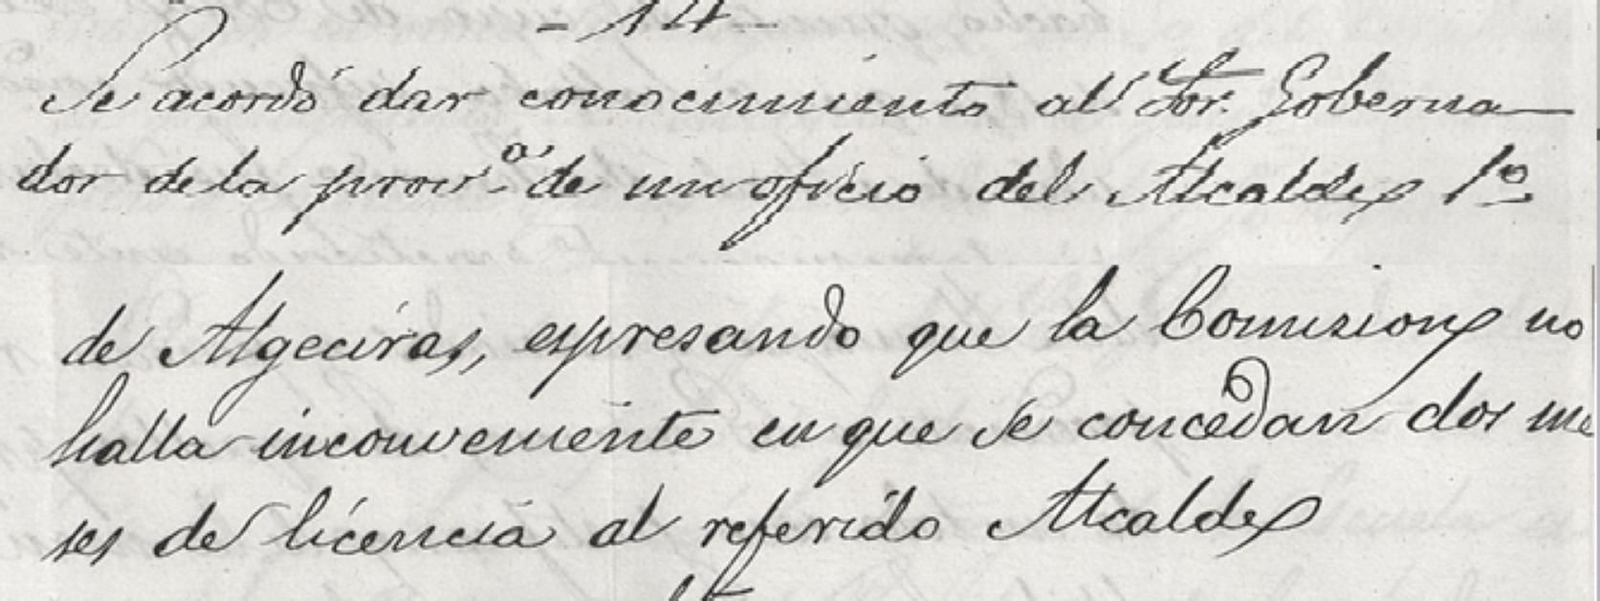 - 14 -
Se acordó dar conocimiento al Sor. Goberna-
dor de la prov.ª de un oficio del Alcalde 1º
de Algeciras, espresando que la Comision no
halla inconveniente en que se concedan dos me
ses de licencia al referido Alcalde